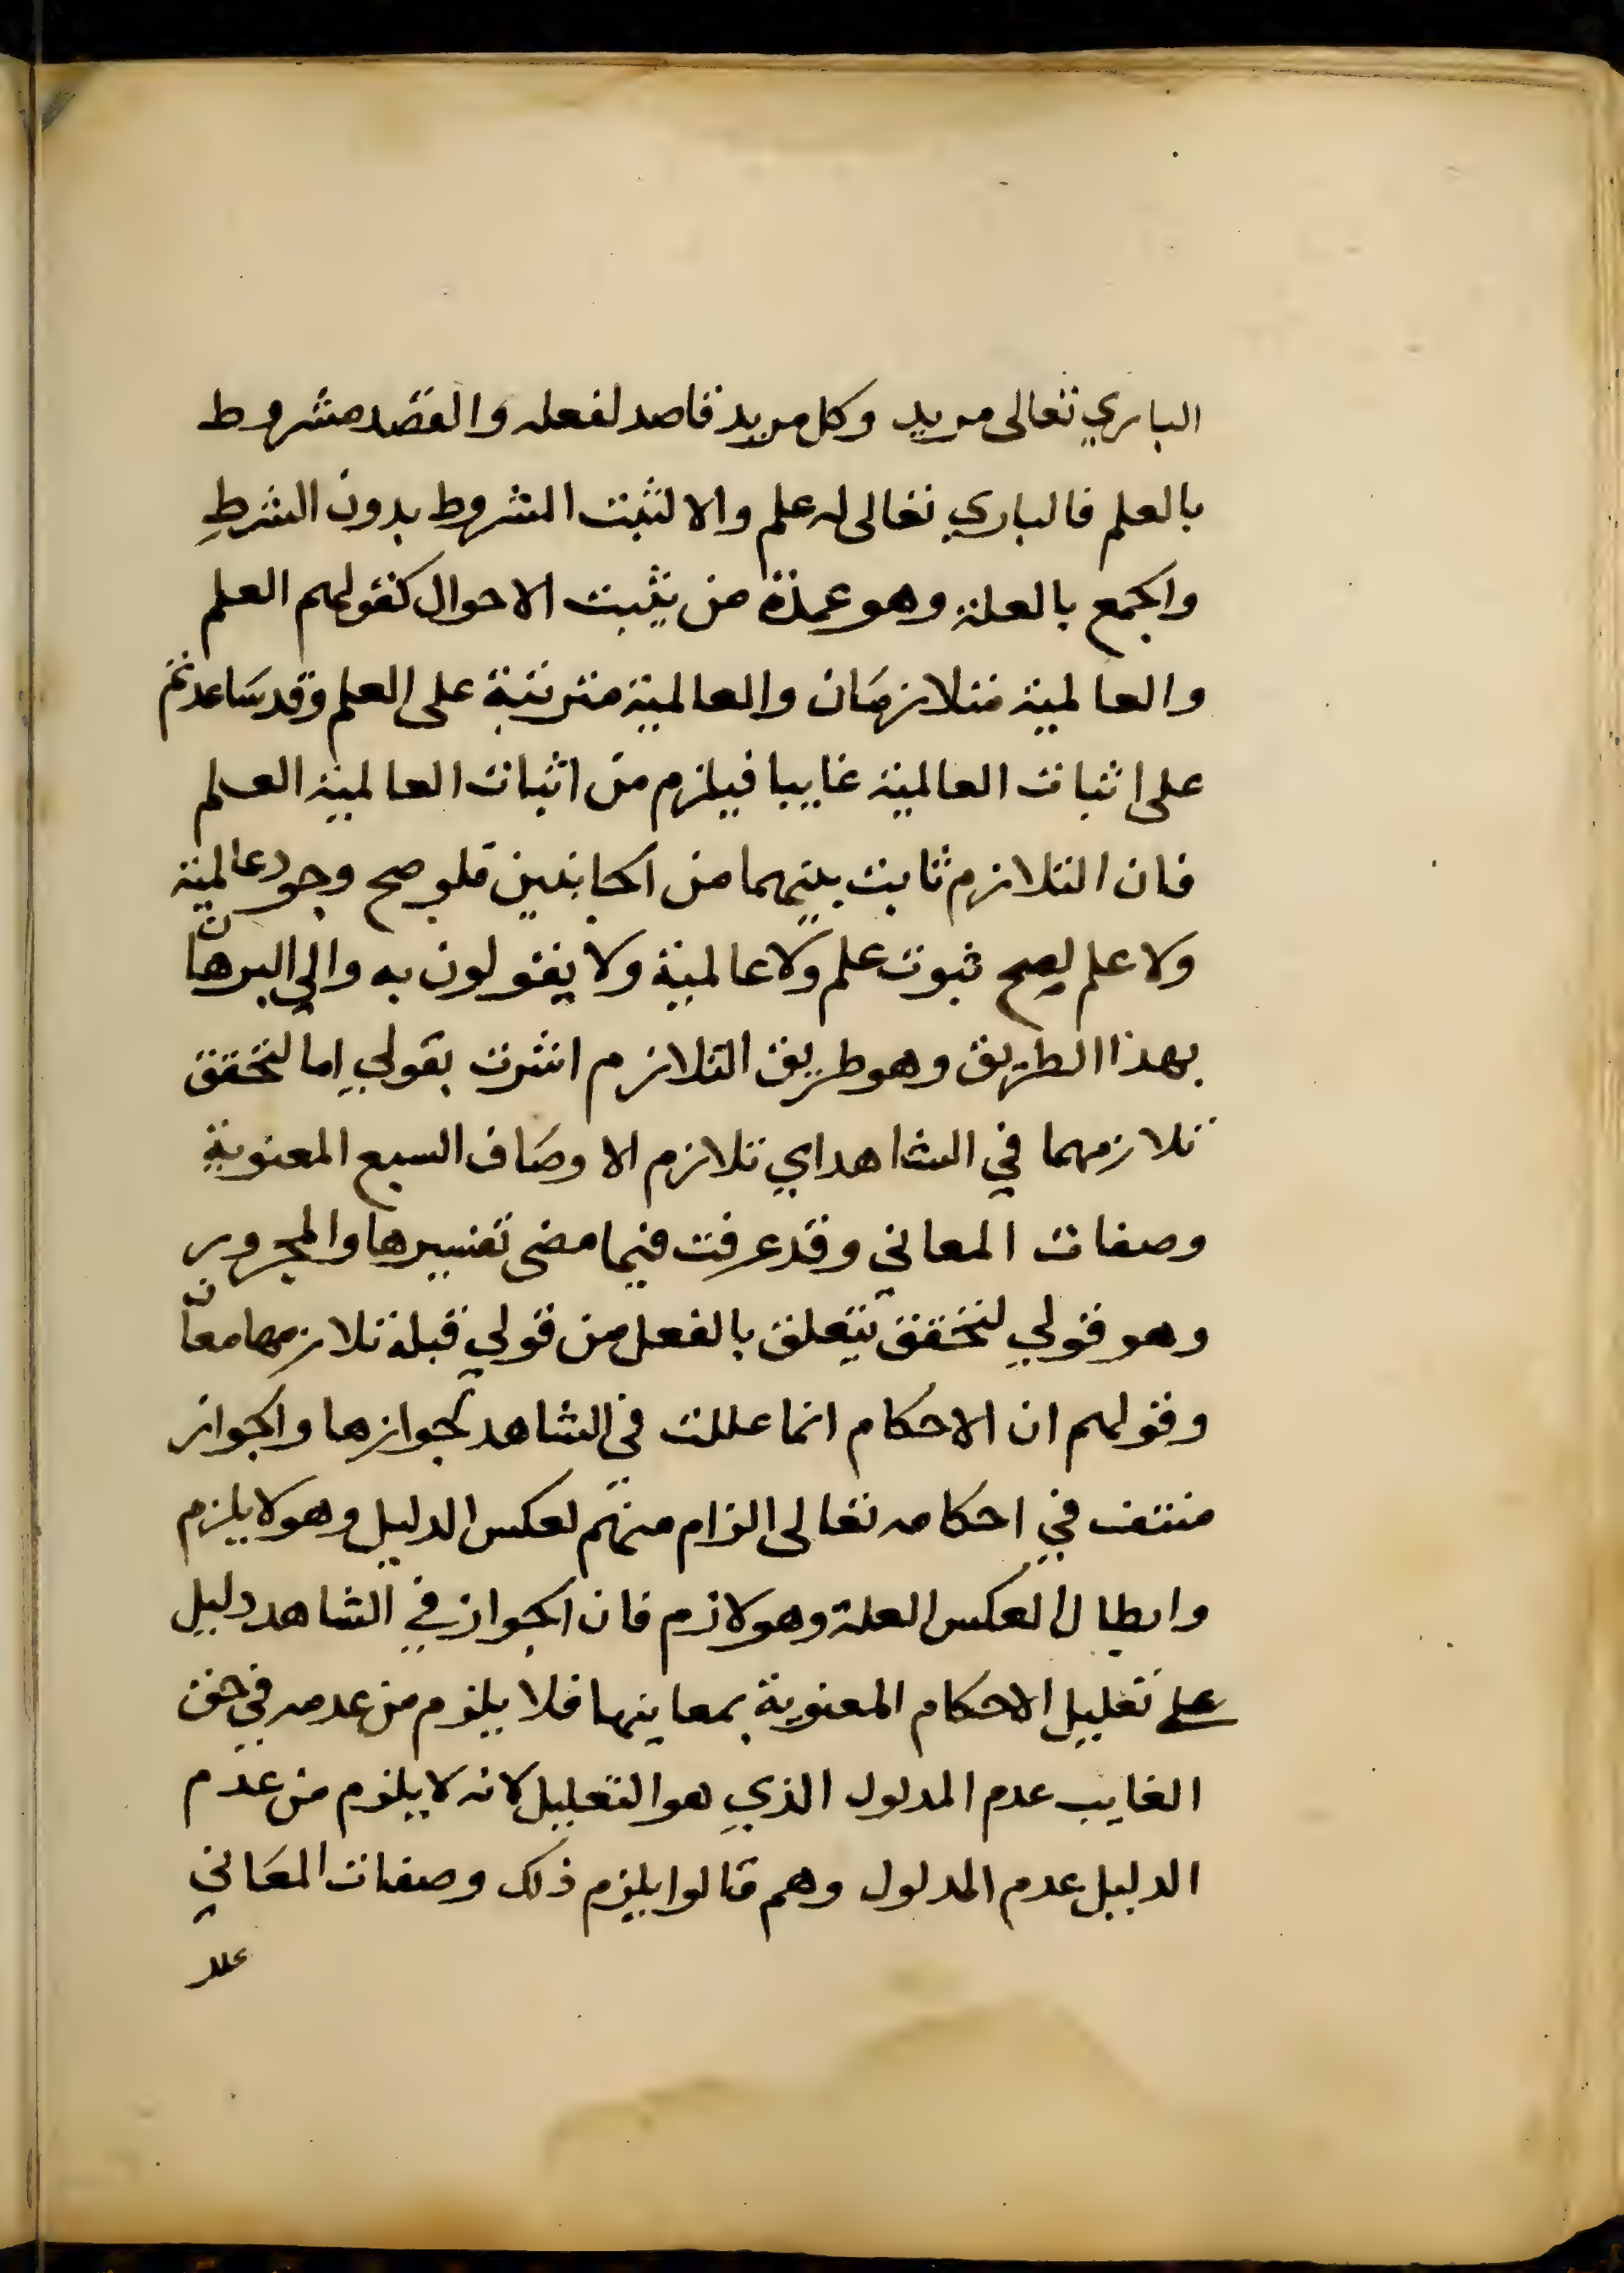 الباري تعالى مريد وكل مريد قاصد لفعله والقصد مشروط
بالعلم فالباري تعالى له علم والا لثبت المشروط بدون الشرط
والجمع بالعلة وهو عمدة من يثبت الاحوال كقولهم العلم
والعالمية متلازمان والعالمية مترتبة على العلم وقد ساعدتم
على اثبات العالمية غايبا فيلزم من اثبات العالمية العلم
فان التلازم ثابت بينهما من الجانبين فلو صح وجود عالمية
ولا علم لصح ثبوت علم ولا عالمية ولا يقولون به والي البرهان
بهذا الطريق وهو طريق التلازم اشرت بقولي اما لتحقق
تلازمهما في الشاهد اي تلازم الاوصاف السبع المعنوية
وصفات المعاني وقد عرفت فيما مضى تفسيرها والمجرور
وهو قولي لتحقق يتعلق بالفعل من قولي قبله تلازمها معان
وقولهم ان الاحكام انما عللت في الشاهد لجوازها والجواز
منتف في احكامه تعالى الزام منهم لعكس الدليل وهو لا يلزم
وابطال لعكس العلة وهو لازم فان الجواز في الشاهد دليل
على تعليل الاحكام المعنوية بمعاينها فلا يلزم من عدمه في حق
الغايب عدم المدلول الذي هو التعليل لانه لا يلزم من عدم
الدليل عدم المدلول وهم قالوا يلزم ذلك وصفات المعاني